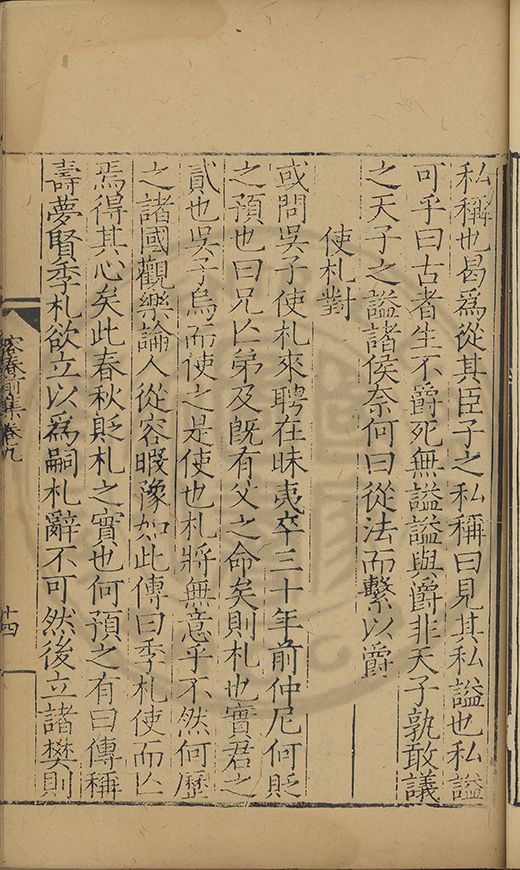 私稱也曷為從其臣子之私稱曰見其私謚也私謚
可乎曰古者生不爵死無謚謚與爵非天子孰敢議
之天子之謚諸侯奈何曰從法而繫以爵
使札對
或問吳子使札來聘在昧夷卒三十年前仲尼何貶
之預也曰兄亾弟及旣有父之命矣則札也實君之
貳也吳子烏而使之是使也札將無意乎不然何歷
之諸國觀樂論人從容暇豫如此傳曰季札使而亾
焉得其心矣此春秋貶札之實也何預之有曰傳稱
壽夢賢季札欲立以為嗣札辭不可然後立諸樊則
容春前集卷九
十四